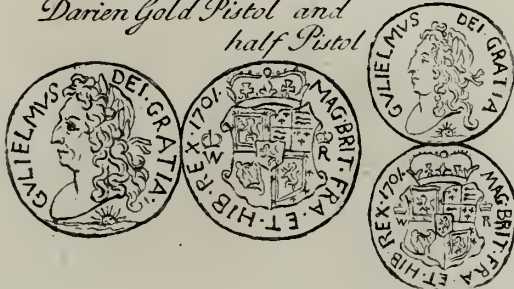 Darien Gold Pistol and
half Pistol
GVLIELMVS DEI·GRATIA·
MAG·BRIT·FRA·ET·HIB·REX·1701·
W R
GVLIELMVS DEI·GRATIA
MAG·BRIT·FRA·ET·HIB·REX·1701·
W R